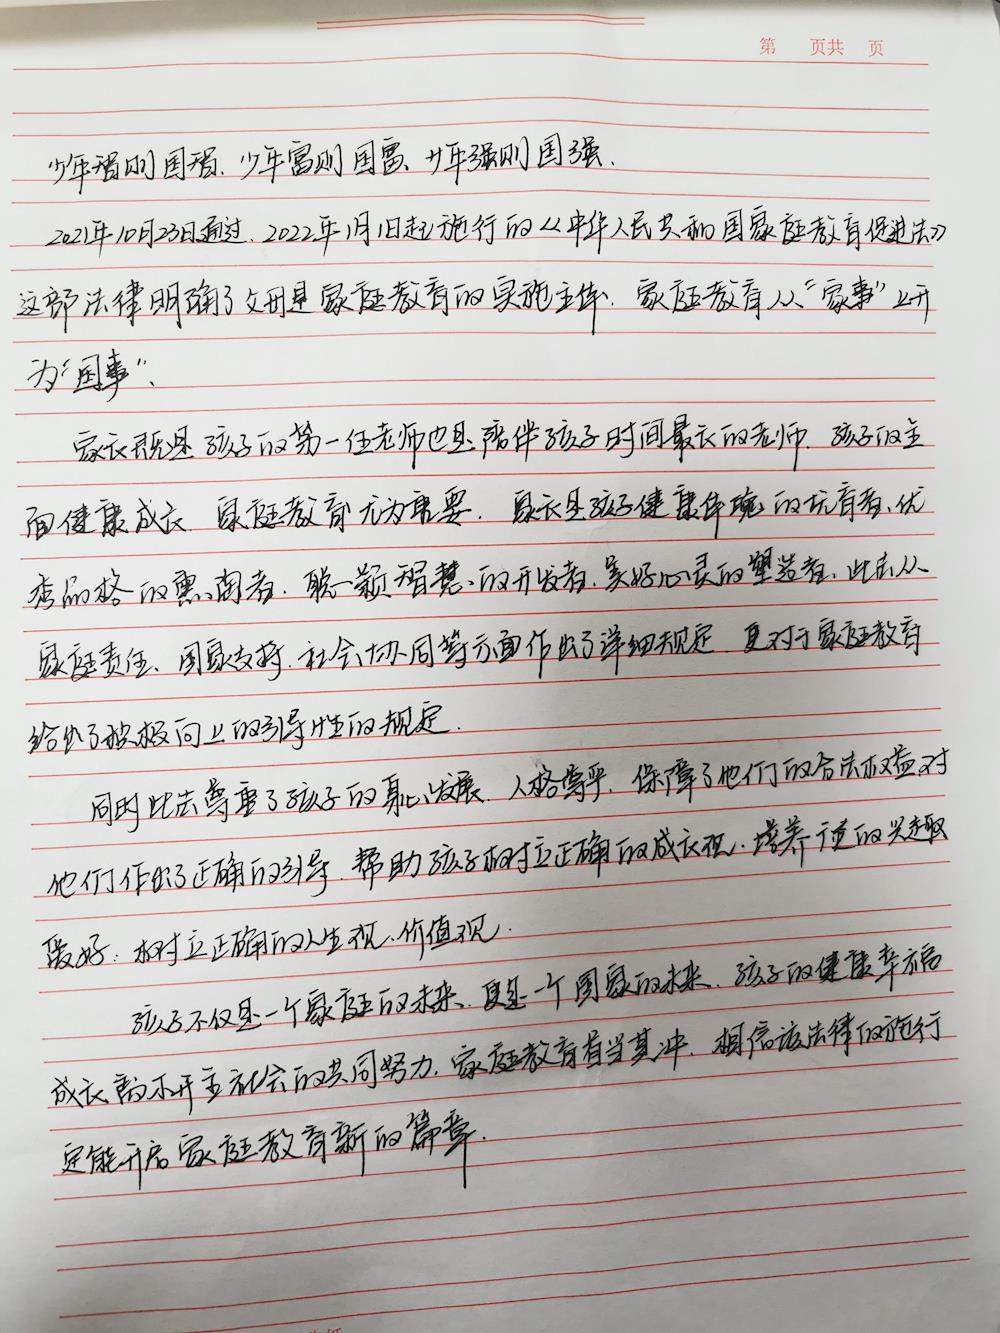 第 页共 页
少年智则国智、少年富则国富、少年强则国强、
2021年10月23日通过、2022年1月1日起施行的《中华人民共和国家庭教育促进法》
这部法律明确了父母是家庭教育的实施主体、家庭教育从“家事”上升
为“国事”、
家长既是孩子的第一任老师也是陪伴孩子时间最长的老师、孩子的全
面健康成长、家庭教育尤为重要、家长是孩子健康体魄的抚育者、优
秀品格的熏陶者、聪颖智慧的开发者、美好心灵的塑造者、此法从
家庭责任、国家支持、社会协同等方面作出了详细规定、更对于家庭教育
给出了积极向上的引导性的规定、
同时此法尊重了孩子的身心发展、人格尊严、保障了他们的合法权益对
他们作出了正确的引导、帮助孩子树立正确的成长观、培养 的兴趣
爱好、树立正确的人生观、价值观、
孩子不仅是一个家庭的未来、更是一个国家的未来、孩子的健康幸福
成长离不开全社会的共同努力、家庭教育首当其冲、相信该法律的施行
定能开启家庭教育新的篇章、